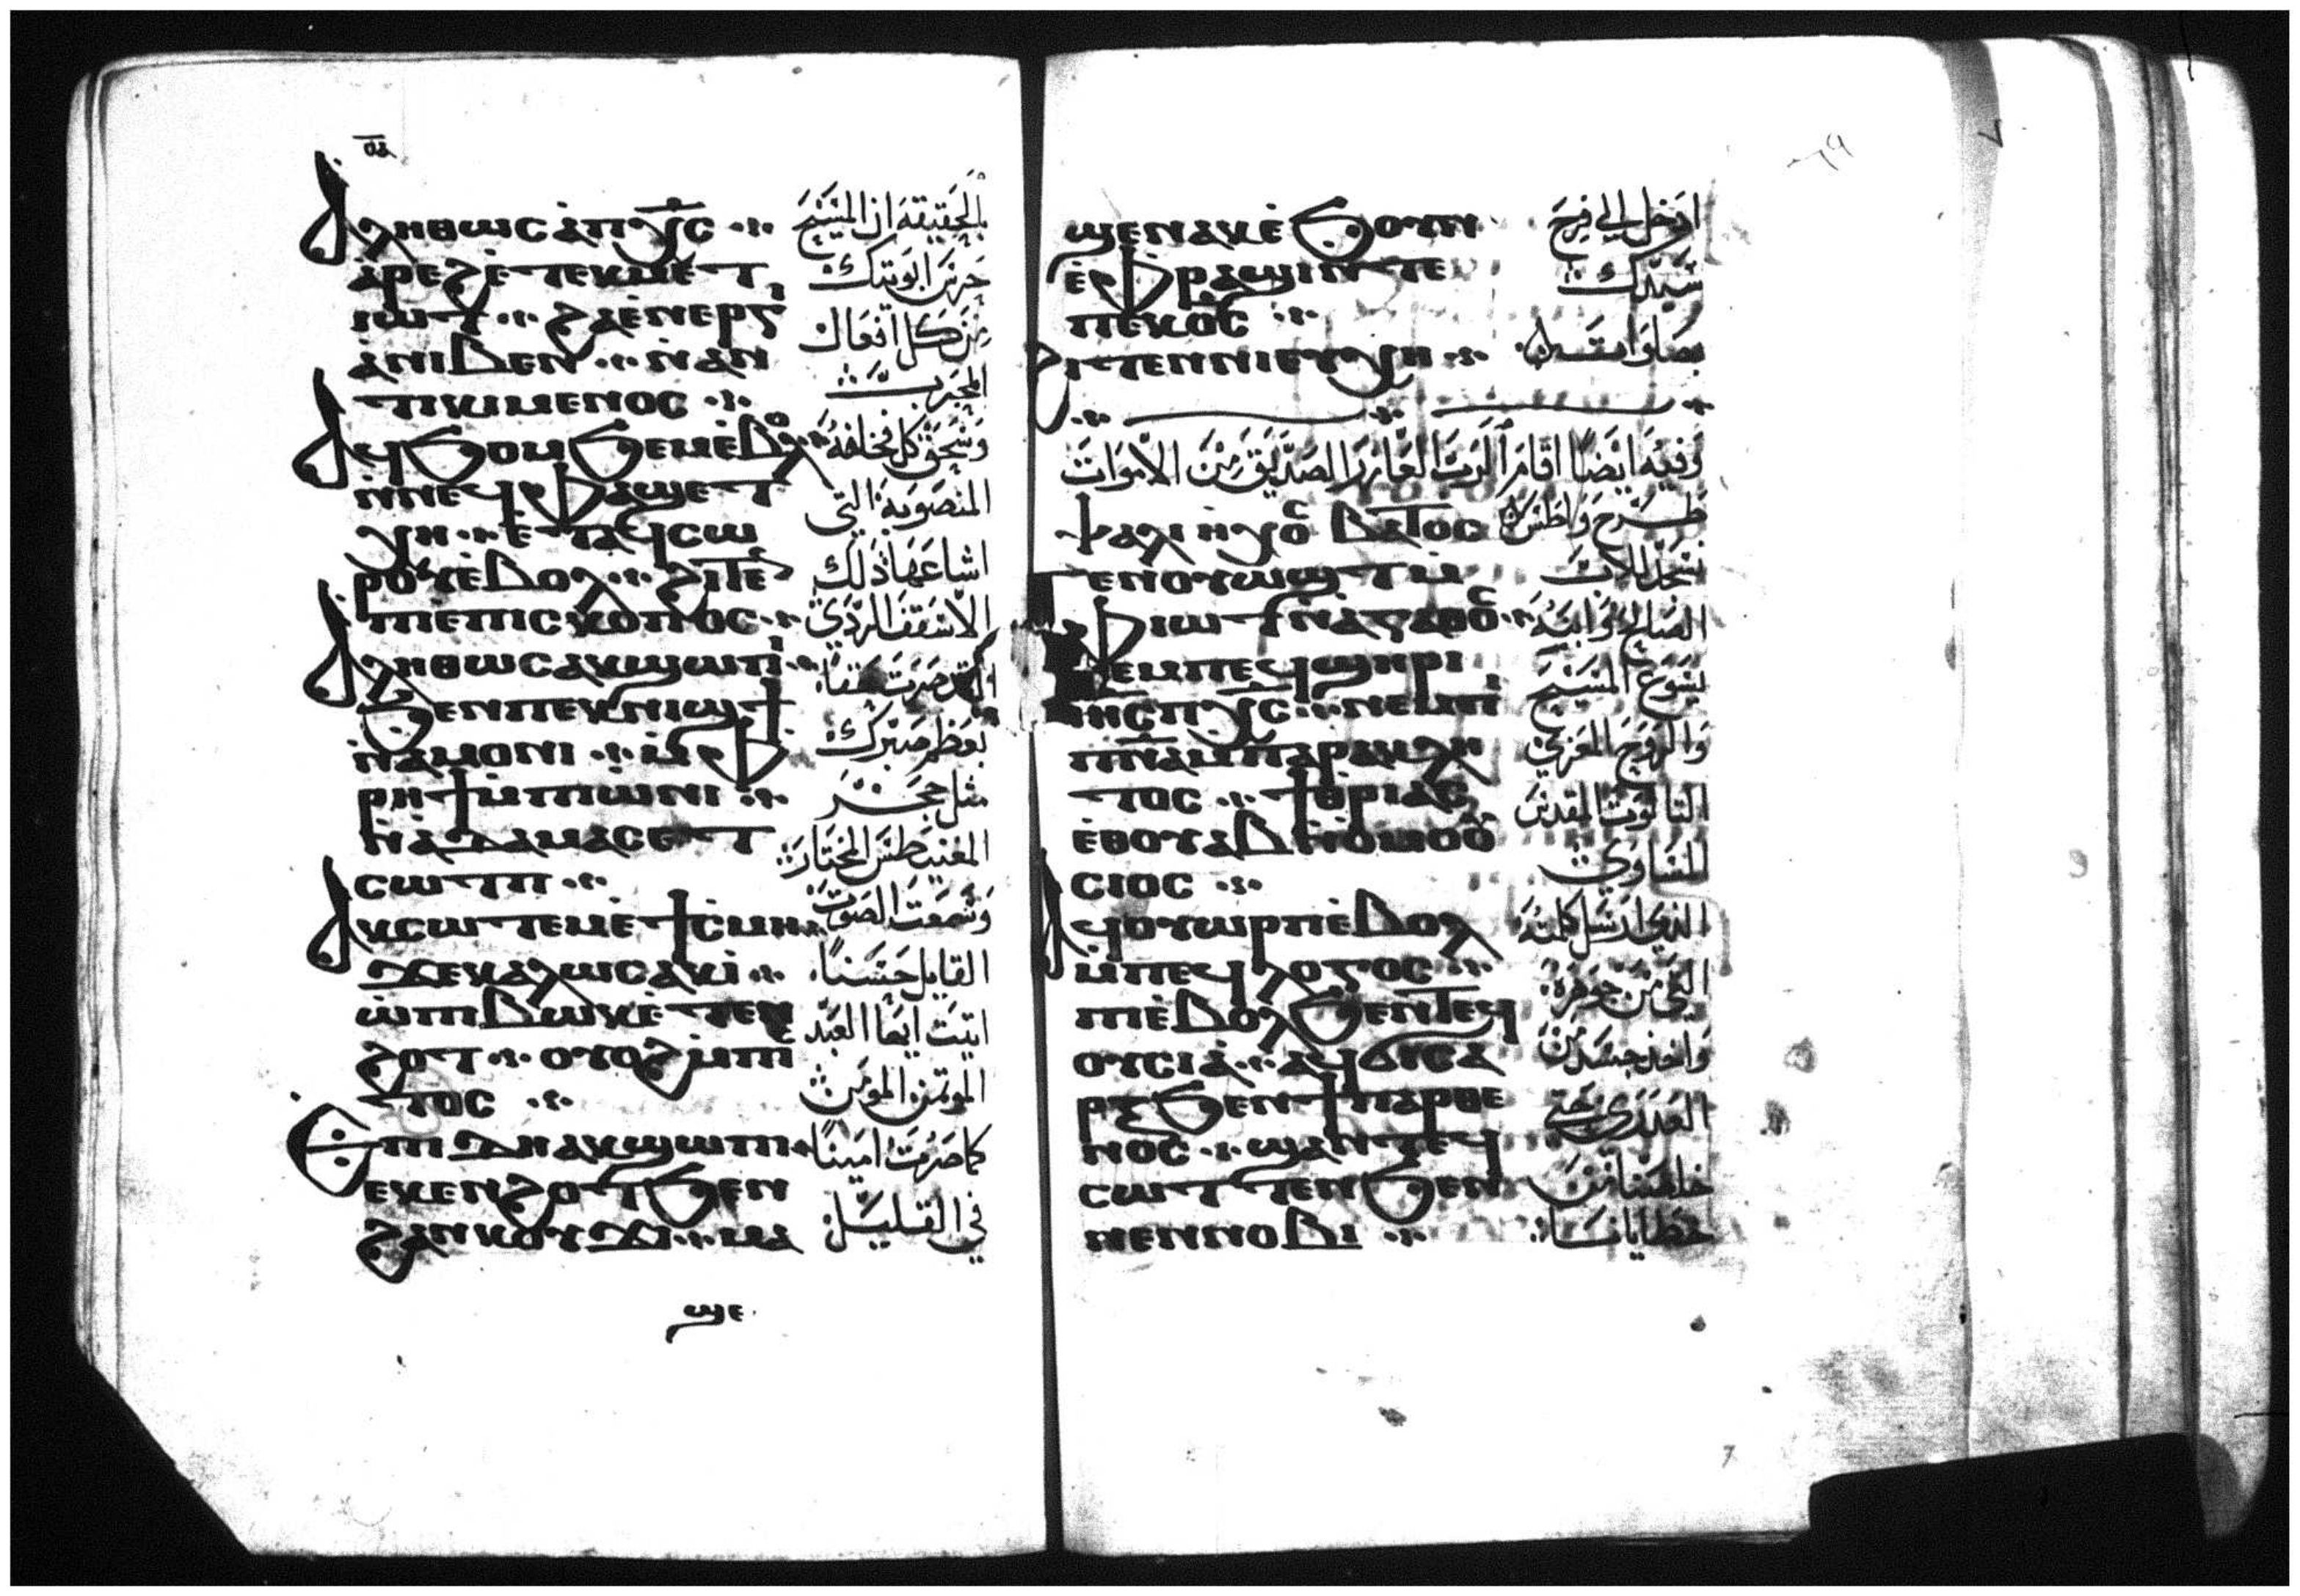 ⲁⲗⲏⲑⲱⲥ ⲁ̀ⲡⲭ̅ⲥ̅
ⲁ̀ⲣⲉϩ ⲉ̀ⲧⲉⲕⲙⲉⲧ
ⲓⲱⲧ ϩⲁ ⲉ̀ⲛⲉⲣⲅ
ⲁ̀ ⲛⲓⲃⲉⲛ ⲛ̀ⲁⲛ
ⲧⲓⲕⲓⲙⲉⲛⲟⲥ
ⲁϥϧⲟⲙϧⲉⲙ ⲉ̀ⲃⲟⲗ
ⲛ̀ⲛⲉϥⲫⲁϣ ⲉⲧ
ⲭⲏ ⲉ̀ⲧⲁϥⲥⲱ
ⲣⲟⲩ ⲉ̀ⲃⲟⲗ ϩⲓⲧⲉ
ⲡⲓⲉ̀ⲡⲓⲥⲕⲟⲡⲟⲥ
ⲁⲗⲏⲑⲱⲥ ⲁⲕϣⲱⲡⲓ
ϧⲉⲛ ⲡⲉⲕⲛⲓϣϯ
ⲛ̀ⲁⲙⲟⲛⲓ ⲙ̀ⲫ
ⲣⲏϯ ⲙ̀ⲡⲓⲱ̀ⲛⲓ
ⲛ̀ⲁⲇⲁⲙⲁⲥ ⲉⲧ
ⲥⲱⲧⲡ
ⲁⲕⲥⲱⲧⲉⲙ ⲉ̀ϯⲥ̀ⲙⲏ
ϫⲉ ⲕⲁⲗⲱⲥ ⲁⲕⲓ̀
ⲱ̀ ⲡⲓⲃⲱⲕ ⲉ̀ⲧⲉⲛ
ϩⲟⲧ ⲟⲩⲟϩ ⲙ̀ⲡⲓ
ⲥⲧⲟⲥ
ⲉⲡⲓⲇⲏ ⲁⲕϣⲱⲡⲓ
ⲉⲕⲉⲛϩⲟⲧ ϧⲉⲛ
ϩⲁⲛⲕⲟⲩϫⲓ ⲙⲁ
ϣⲉ
بالحقيقة ان المسيح
حرس ابويتك
من كل افعال
المجرب
وسحق كل فخاخه
المنصوبة التي
اشاعها ذلك
الاسقف الردي
بعظم صبرك
مثل حجر
المغنيطس المختار
وسمعت الصوت
القايل حسناً
اتيت ايها العبد
الموتمن المومن
كما صرت امينا
في القليل
ϣⲉ ⲛⲁⲕ ⲉ̀ϧⲟⲩⲛ
ⲉ̀ⲫⲣⲁϣⲓ ⲛ̀ⲧⲉ
ⲡⲉⲕⲟ̅ⲥ̅
ϩⲓⲧⲉⲛ ⲛⲓⲉⲩⲭⲏ
ادخل الي فرح
سيدك
بصلوات
وفيه ايضا اقام الرب العازر الصديق من الاموات
ⲯⲁⲗⲓ ⲏⲭⲟⲥ ⲃⲁⲧⲟⲥ
ⲧⲉⲛⲟⲩⲱϣⲧ ⲙ̀
ⲫⲓⲱⲧ ⲛ̀ⲁⲅⲁⲑⲟⲥ
ⲛⲉⲙ ⲡⲉϥϣⲏⲣⲓ
ⲓⲏ̅ⲥ̅ ⲡⲭ̅ⲥ̅ ⲛⲉⲙ ⲡⲓ
ⲡⲛ̅ⲁ̅ ⲙ̀ⲡⲁⲣⲁⲕⲗⲏ
ⲧⲟⲥ ϯⲧⲣⲓⲁⲥ
ⲉ̀ⲑⲟⲩⲁⲃ ⲛ̀ⲟ̀ⲙⲟⲟⲩ
ⲥⲓⲟⲥ
ⲁϥⲟⲩⲱⲣⲡ ⲉ̀ⲃⲟⲗ
ⲙ̀ⲡⲉϥⲗⲟⲅⲟⲥ
ⲡⲓⲉ̀ⲃⲟⲗ ϧⲉⲛ ⲧⲉϥ
ⲟⲩⲥⲓⲁ̀ ⲁϥϭⲓⲥⲁ
ⲣⲝ ϧⲉⲛ ϯⲡⲁⲣⲑⲉ
ⲛⲟⲥ ϣⲁⲛⲧⲉϥ
ⲥⲱϯ ⲧⲉⲛ ϧⲉⲛ
ⲛⲉⲛⲛⲟⲃⲓ
طرح واطس
نسجد للاب
الصالح وابنه
يسوع المسيح
والروح المعزي
الثالوث المقدس
المساوي
الذي ارسل كلمته
التي من جوهره
واخذ جسد من
العذري حتي
خلصنا من
خطايانا